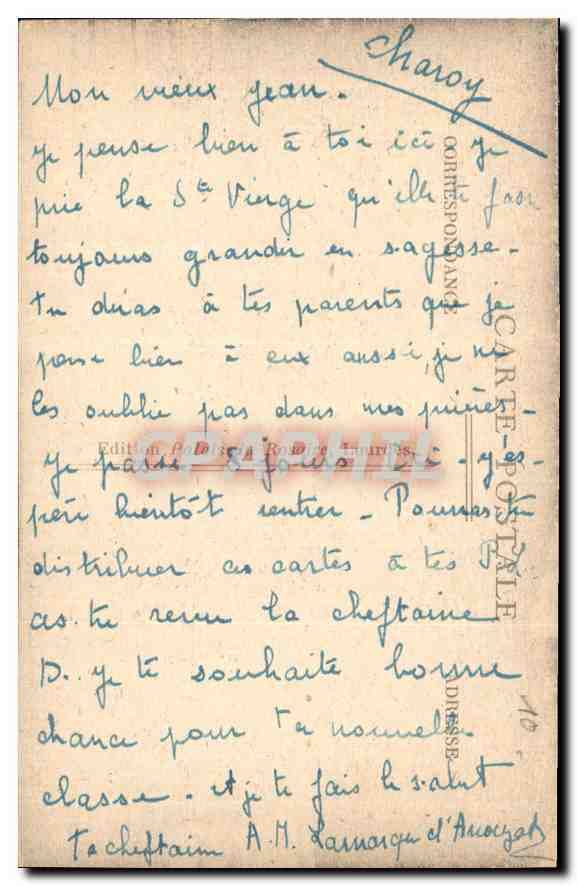 Charoy
Mon vieux Jean.
Je pense bien à toi ici je
prie la Ste Vierge qu'elle te fasse
toujours grandir en sagesse.
tu diras à tes parents que je
pense bien à eux aussi, je ne
les oublie pas dans mes prières.
Je passe 8 jours ici. J'es-
père bientôt rentrer. Pourras tu
distribuer ces cartes à tes
as tu revu la cheftaine
D. Je te souhaite bonne
chance pour ta nouvelle
classe. et je te fais le salut
Ta cheftaine A.M. Lamarque d'
CORRESPONDANCE
CARTE POSTALE
ADRESSE
Edition Rosaire, Lourdes.
CPAPHIL
10